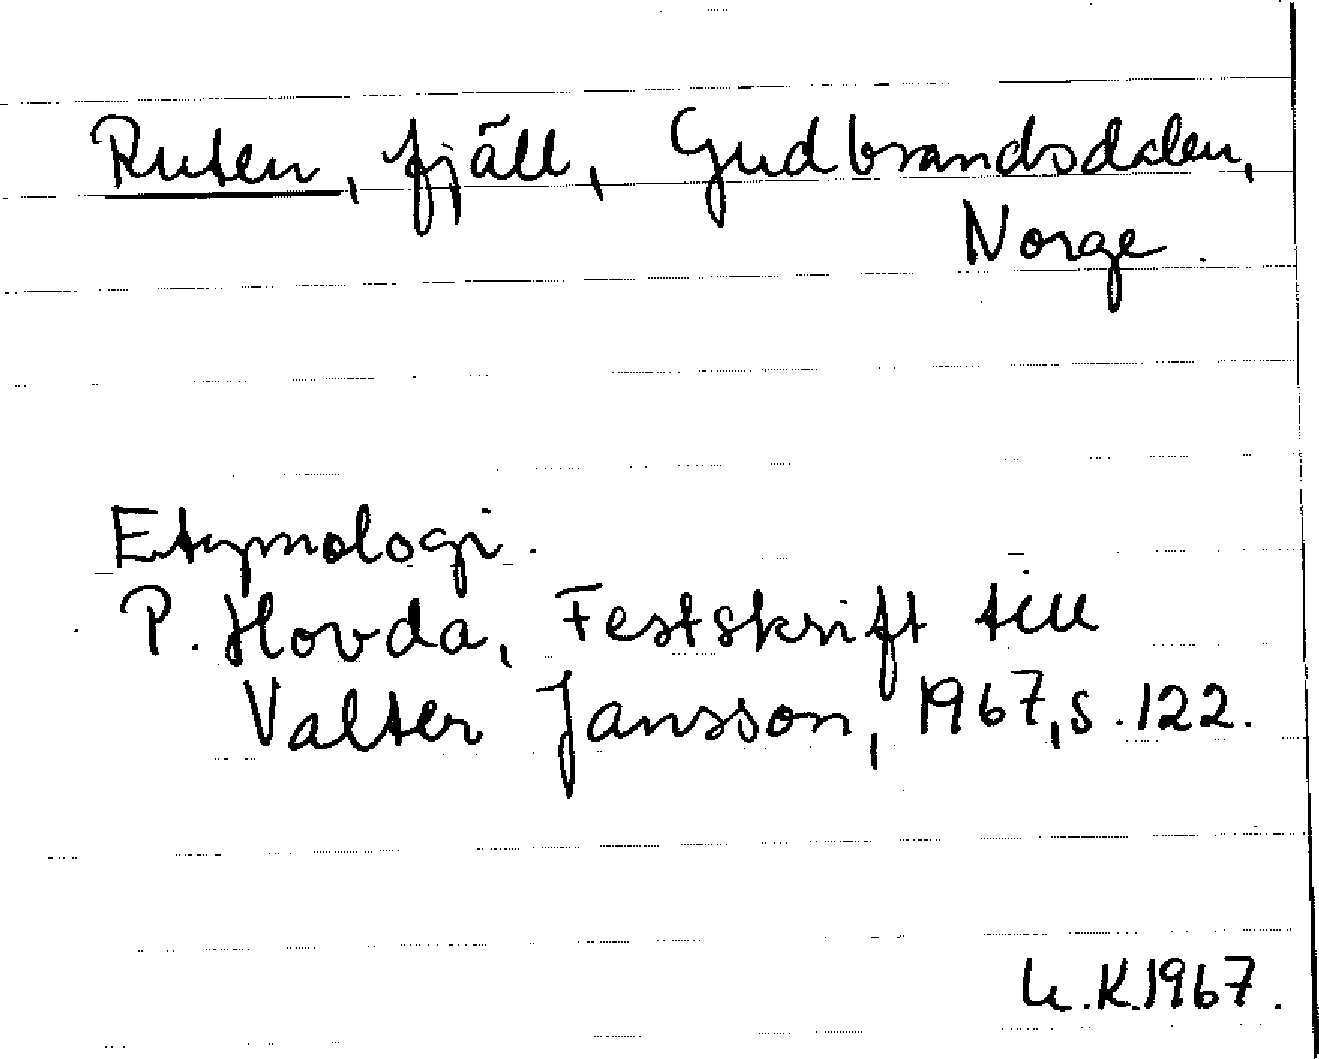 Ruten, fjäll, Gudbrandsdalen,
Norge.
Etymologi.
P. Hovda, Festskrift till
Valter Jansson, 1967, s. 122.
U.K. 1967.